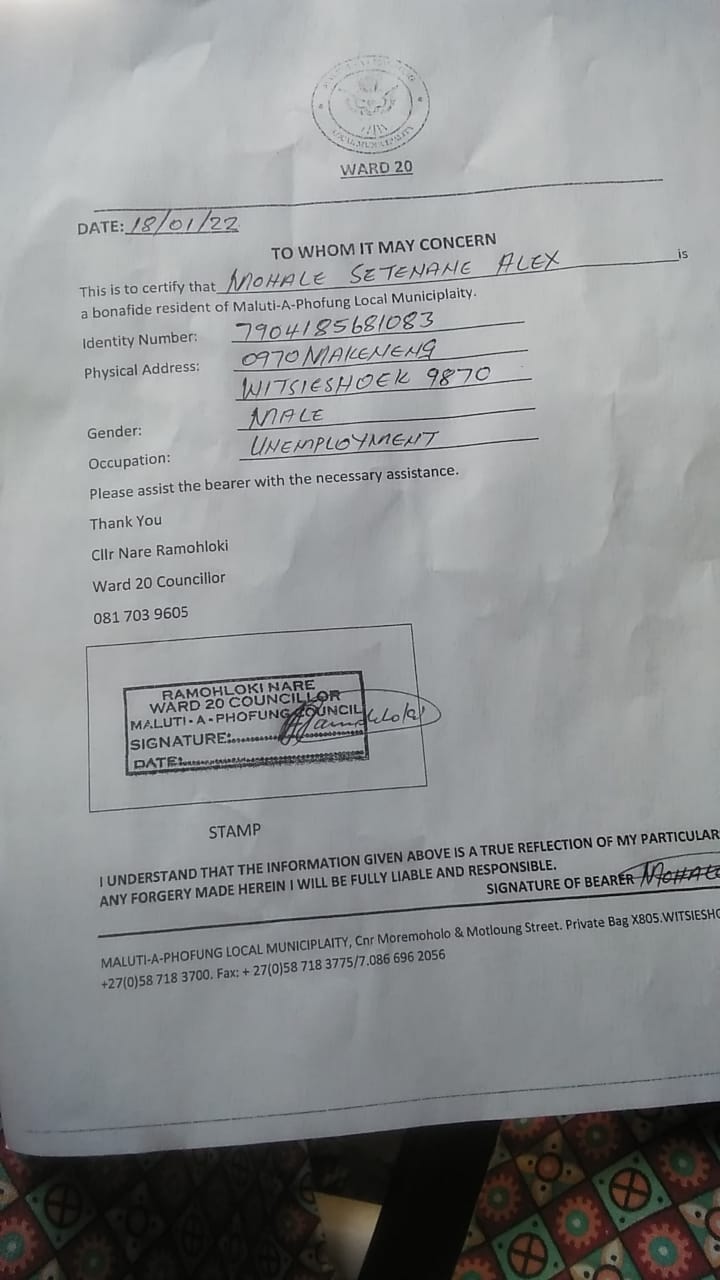 LOCAL MUNICIPALITY
WARD 20
DATE: 18/01/22
TO WHOM IT MAY CONCERN
This is to certify that MOHALE SETENANE ALEX is
a bonafide resident of Maluti-A-Phofung Local Municiplaity.
Identity Number: 7904185681083
Physical Address: 0970 MAKENENG
WITSIESHOEK 9870
Gender: MALE
Occupation: UNEMPLOYMENT
Please assist the bearer with the necessary assistance.
Thank You
Cllr Nare Ramohloki
Ward 20 Councillor
081 703 9605
RAMOHLOKI NARE
WARD 20 COUNCILLOR
MALUTI-A-PHOFUNG COUNCIL
SIGNATURE: Ramohloki
DATE:
STAMP
I UNDERSTAND THAT THE INFORMATION GIVEN ABOVE IS A TRUE REFLECTION OF MY PARTICULAR
ANY FORGERY MADE HEREIN I WILL BE FULLY LIABLE AND RESPONSIBLE.
SIGNATURE OF BEARER MOHALE
MALUTI-A-PHOFUNG LOCAL MUNICIPLAITY, Cnr Moremoholo & Motloung Street. Private Bag X805.WITSIESHO
+27(0)58 718 3700. Fax: + 27(0)58 718 3775/7.086 696 2056